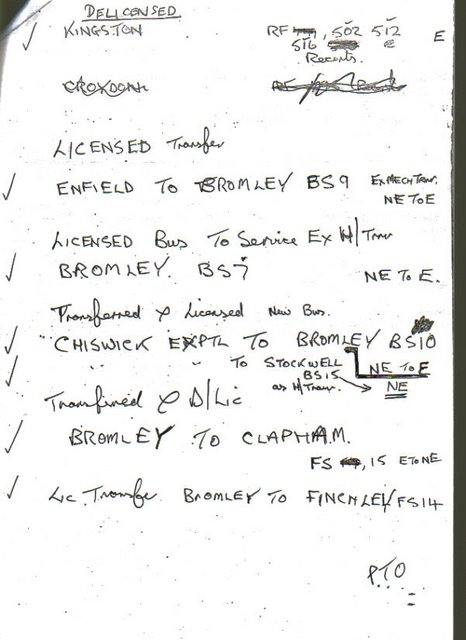 DELICENSED
KINGSTON RF , 502 512 E
516 e
Recerts.
CROYDON
LICENSED Transfer
ENFIELD TO BROMLEY BS9 Ex MECH Tran.
NE TO E
LICENSED Bus To Service Ex H/Tran
BROMLEY. BS7 NE To E.
Transferred & Licensed New Bus.
CHISWICK EXPTL TO BROMLEY BS10
" " TO STOCKWELL NE TO E
BS15
as H/Tran. → NE
Transferred & D/Lic
BROMLEY TO CLAPHAM.
FS , 15 E TO NE
Lic. Transfer BROMLEY TO FINCHLEY FS14
PTO